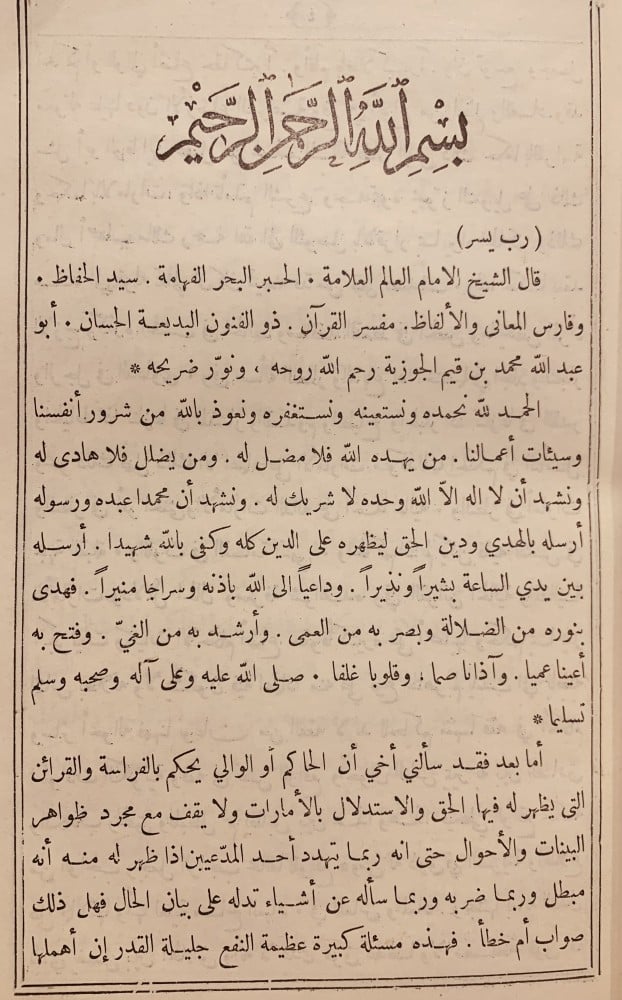 بسم الله الرحمن الرحيم
( رب يسر )
قال الشيخ الامام العالم العلامة . الحبر البحر الفهامة . سيد الحفاظ .
وفارس المعانى والألفاظ . مفسر القرآن . ذو الفنون البديعة الحسان . أبو
عبد الله محمد بن قيم الجوزية رحم الله روحه ، ونوّر ضريحه *
الحمد لله نحمده ونستعينه ونستغفره ونعوذ بالله من شرور أنفسنا
وسيئات أعمالنا . من يهده الله فلا مضل له . ومن يضلل فلا هادى له
ونشهد أن لا اله الاّ الله وحده لا شريك له . ونشهد أن محمدا عبده ورسوله
أرسله بالهدي ودين الحق ليظهره على الدين كله وكفى بالله شهيدا . أرسله
بين يدي الساعة بشيراً ونذيراً . وداعياً الى الله باذنه وسراجا منيراً . فهدى
بنوره من الضلالة وبصر به من العمى . وأرشد به من الغيّ . وفتح به
أعينا عميا . وآذانا صما ، وقلوبا غلفا . صلى الله عليه وعلى آله وصحبه وسلم
تسليما *
أما بعد فقد سألني أخي أن الحاكم أو الوالي يحكم بالفراسة والقرائن
التى يظهر له فيها الحق والاستدلال بالأمارات ولا يقف مع مجرد ظواهر
البينات والأحوال حتى انه ربما يتهدد أحد المدّعيين اذا ظهر له منه أنه
مبطل وربما ضربه وربما سأله عن أشياء تدله على بيان الحال فهل ذلك
صواب أم خطأ . فهذه مسئلة كبيرة عظيمة النفع جليلة القدر إن أهملها